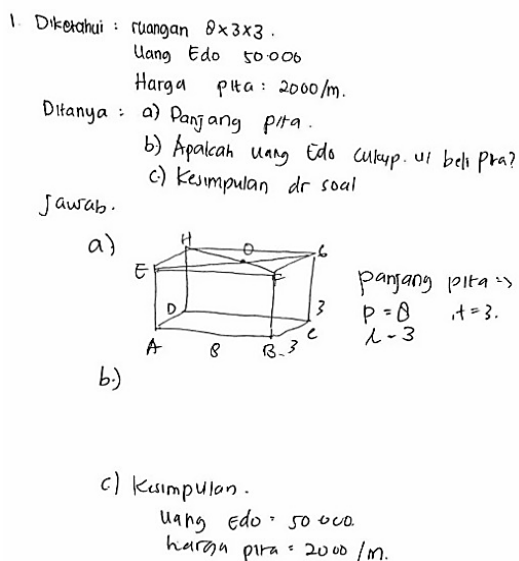 1. Diketahui : ruangan 8x3x3.
Uang Edo 50.000
Harga pita : 2000/m.
Ditanya : a) Panjang pita.
b) Apakah uang Edo cukup. u/ beli pita?
c) Kesimpulan dr soal
Jawab.
a)
H O G
E F
D 3
A 8 B 3 C
panjang pita =>
p = 8 , t = 3.
l = 3
b.)
c) Kesimpulan.
Uang Edo = 50.000.
harga pita = 2000 /m.